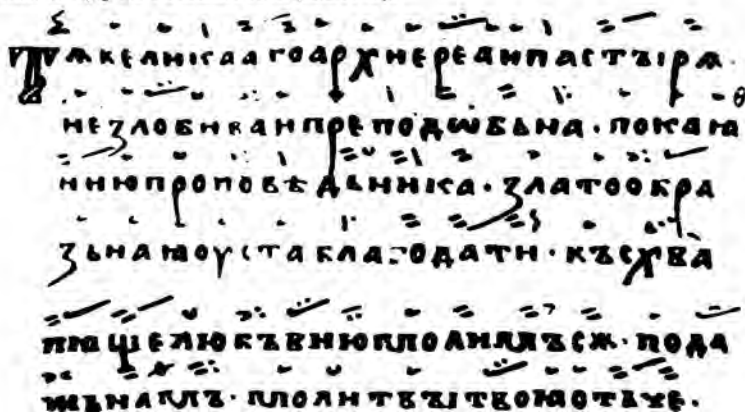 Тѧвеликаагоархиереаипастъірѧ·
незлобиваипреподѡбьна·покаꙗ
ниюпроповѣдьника·златообра
зьнаꙗоустаблагодати·въсхва
лꙗщелюбъвиюмолимъсѧ·пода
жьнамъ·молитвъітвоꙗотьче·